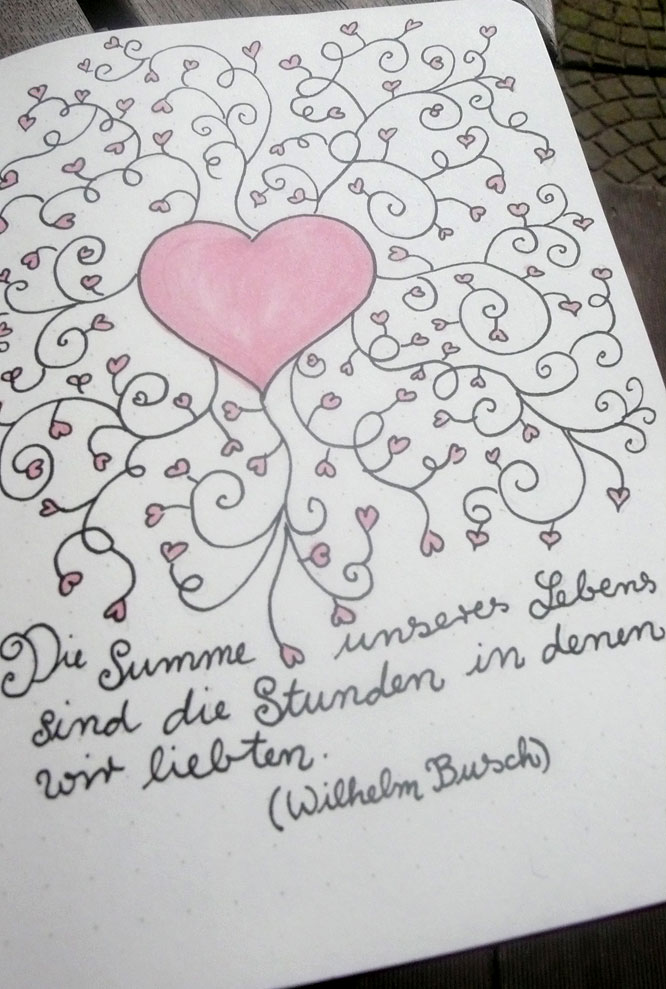 Die Summe unseres Lebens
sind die Stunden in denen
wir liebten.
(Wilhelm Busch)